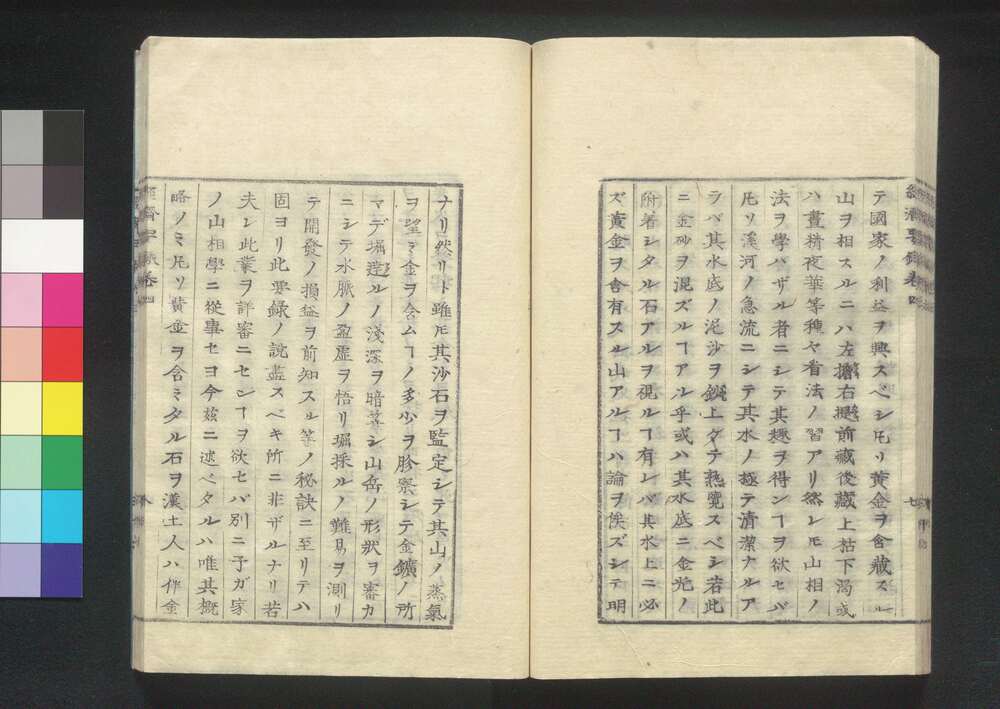 經濟要錄卷四
テ國家ノ利益ヲ興スベシ凡ソ黄金ヲ含藏スル
山ヲ相スルニハ左擔右擔前藏後藏上枯下渇或
ハ晝精夜華等種々看法ノ習アリ然レ𪜈山相ノ
法ヲ學バザル者ニシテ其趣ヲ得ンヿヲ欲セバ
凡ソ溪河ノ急流ニシテ其水ノ極テ清潔ナルア
ラバ其水底ノ泥沙ヲ鍬上ゲテ熟覽スベシ若此
ニ金砂ヲ混ズルヿアル乎或ハ其水底ニ金光ノ
附着シタル石アルヲ視ルヿ有レバ其水上ニ必
ズ黄金ヲ含有スル山アルヿハ論ヲ俟ズシテ明
ナリ然リト雖𪜈其沙石ヲ監定シテ其山ノ蒸氣
ヲ望ミ金ヲ含ムヿノ多少ヲ診察シテ金鑛ノ所
マデ堀達ルノ淺深ヲ暗算シ山岳ノ形狀ヲ審カ
ニシテ水脈ノ盈虚ヲ悟リ堀採ルノ難易ヲ測リ
テ開發ノ損益ヲ前知スル等ノ秘訣ニ至リテハ
固ヨリ此要錄ノ說盡スベキ所ニ非ザルナリ若
夫レ此業ヲ詳審ニセンヿヲ欲セバ別ニ予ガ家
ノ山相學ニ從事セヨ今茲ニ述ベタルハ唯其概
略ノミ凡ソ黄金ヲ含ミタル石ヲ漢土人ハ伴金
經濟要錄卷四